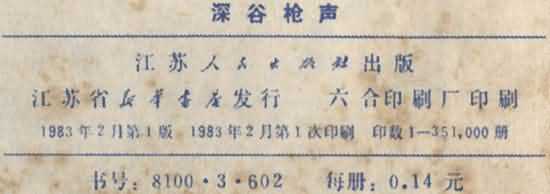 深谷枪声
江苏人民出版社出版
江苏省新华书店发行 六合印刷厂印刷
1983年2月第1版 1983年2月第1次印刷 印数1—351,000册
书号：8100·3·602 每册：0.14元